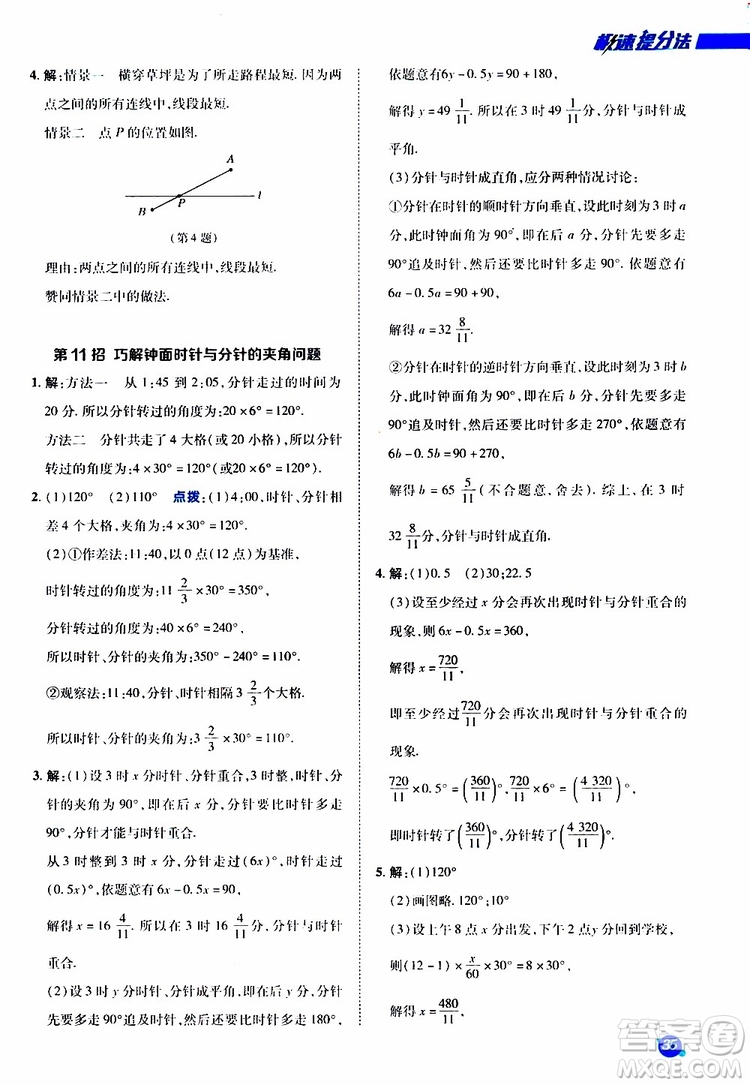 极速提分法
4. 解:情景一　横穿草坪是为了所走路程最短. 两
点之间的所有连线中,线段最短.
情景二　点 P 的位置如图.
A
P
l
B
(第 4 题)
理由:两点之间的所有连线中,线段最短.
赞同情景二中的做法.
第 11 招　巧解钟面时针与分针的夹角问题
1. 解:方法一　从 1:45 到 2:05,分针走过的时间为
20 分. 所以分针转过的角度为:20×6°=120°.
方法二　分针共走了 4 大格(或 20 小格),所以分针
转过的角度为:4×30°=120°(或 20×6°=120°).
2. (1)120°　(2)110°　点拨:(1)4:00,时针、分针相
差 4 个大格,所以时针、分针的夹角为 4×30°=120°.
(2)①作差法:11:40,以 0 点(12 点)为基准,
时针转过的角度为:11 2/3 ×30°=350°,
分针转过的角度为:40×6°=240°,
所以时针、分针的夹角为:350°-240°=110°.
②观察法:11:40,时针、分针相隔 3 2/3 个大格.
所以时针、分针的夹角为:3 2/3 ×30°=110°.
3. 解:(1)设 3 时 x 分时针、分针重合,3 时整时针、分
针的夹角为 90°,当分针走过的角度比时针大
90°,分针才能与时针重合.
从 3 时整到 3 时 x 分,分针走过(6x)°,时针走过
(0.5x)°,依题意有 6x-0.5x=90,
解得 x=16 4/11,所以 3 时 16 4/11 分,分针与时针
重合.
(2)设 3 时 y 分时针、分针成平角,在此y分钟内,分
针先要多走 90°与时针重合,然后还要多走 180°,
依题意有6y-0.5y=90+180,
解得 y=49 1/11. 所以在 3 时 49 1/11 分,分针与时针成
平角.
(3)分针与时针成直角,应分两种情况讨论:
①分针在时针的顺时针方向垂直,设此时刻为 3 时 a
分,此时钟面角为 90°,即在 a 分中,分针先要多走
90°追及时针,然后还要多走 90°. 依题意有
6a-0.5a=90+90,
解得 a=32 8/11.
②分针在时针的逆时针方向垂直,设此时刻为 3 时 b
分,此时钟面角为 90°,即在 b 分中,分针先要多走
90°追及时针,然后还要多走 270°,依题意有
6b-0.5b=90+270,
解得 b=65 5/11(不合题意,舍去). 综上,在 3 时
32 8/11 分,分针与时针成直角.
4. 解:(1)0.5　(2)30;22.5
(3)设至少经过 x 分会再次出现时针与分针重合的
现象,则 6x-0.5x=360,
解得 x=720/11,
即至少经过720/11分会再次出现时针与分针重合的
现象.
720/11×0.5°=(360/11)°,720/11×6°=(4 320/11)°,
即时针转了(360/11)°,分针转了(4 320/11)°.
5. 解:(1)120°
(2)画图略. 120°;10°
(3)设上午 8 点 x 分出发,下午 2 点y分回到学校,
则(12-1)×x/60×30=8×30+x/60×30,
解得 x=480/11,
35
答案圈
MXQE.COM